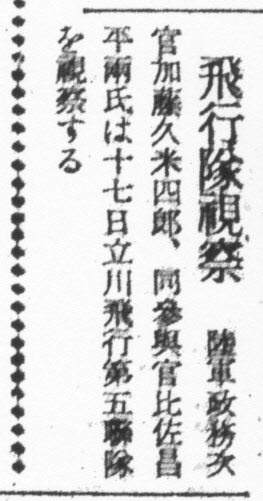 飛行隊視察 陸軍政務次
官加藤久米四郎、同參與官比佐昌
平兩氏は十七日立川飛行第五聯隊
を視察する